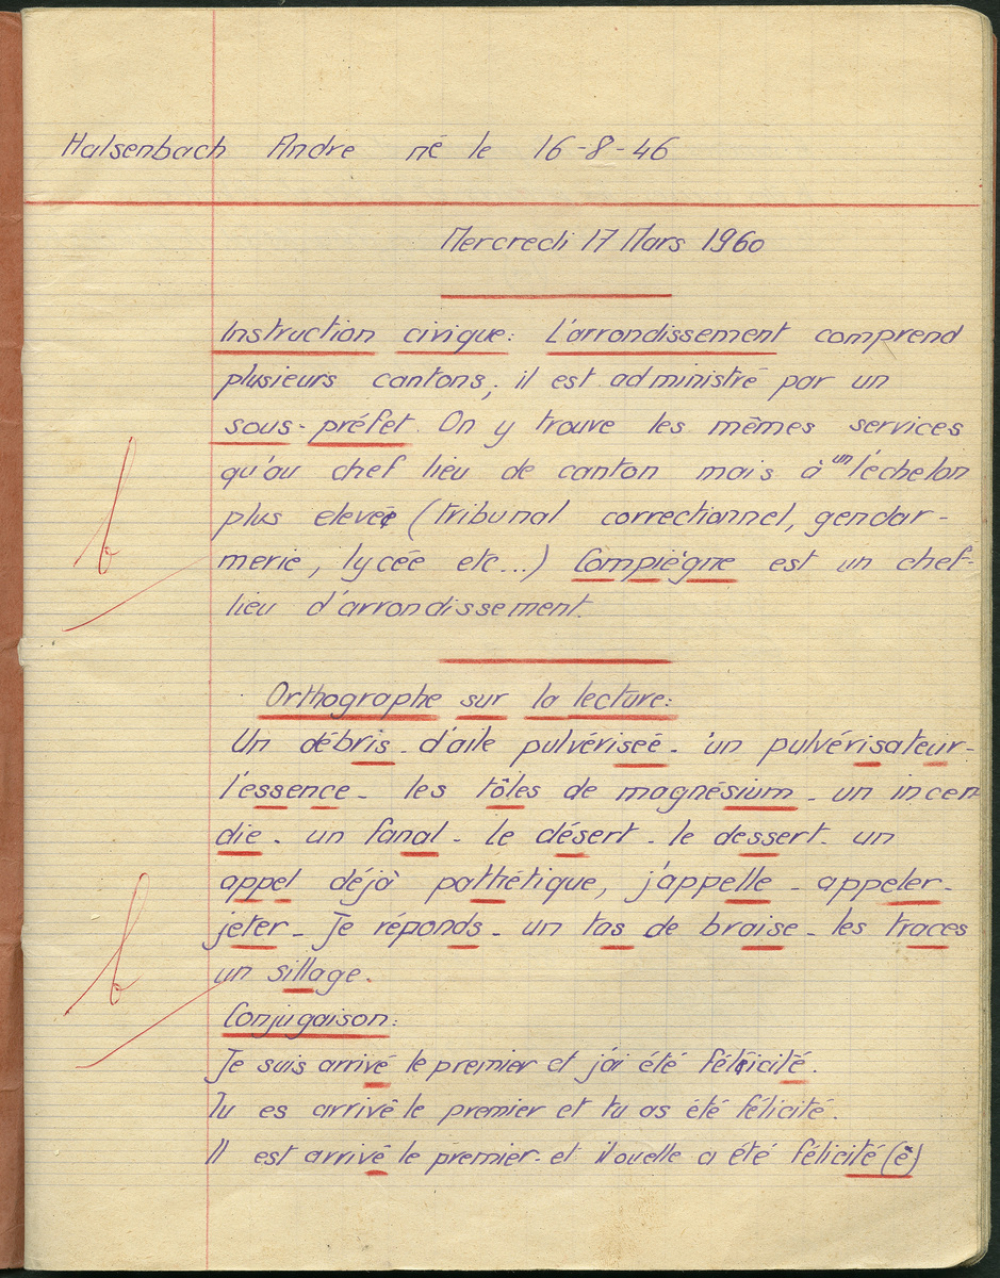 Halsenbach Andre né le 16-8-46
Mercredi 17 Mars 1960
Instruction civique: L'arrondissement comprend
plusieurs cantons, il est administré par un
sous-préfet. On y trouve les mêmes services
qu'au chef lieu de canton mais à un l'échelon
plus elevée (tribunal correctionnel, gendar-
merie, lycée etc...) Compiègne est un chef-
lieu d'arrondissement.
Orthographe sur la lecture:
Un débris - d'aile pulvériseé - un pulvérisateur-
l'essence - les tôles de magnésium - un incen
die - un fanal - le désert - le dessert - un
appel déjà pathétique, j'appelle - appeler -
jeter - Je réponds - un tas de braise - les traces
un sillage.
Conjugaison:
Je suis arrivé le premier et j'ai été félicité.
Tu es arrivé le premier et tu as été félicité.
Il est arrivé le premier et il ou elle a été félicité(e)